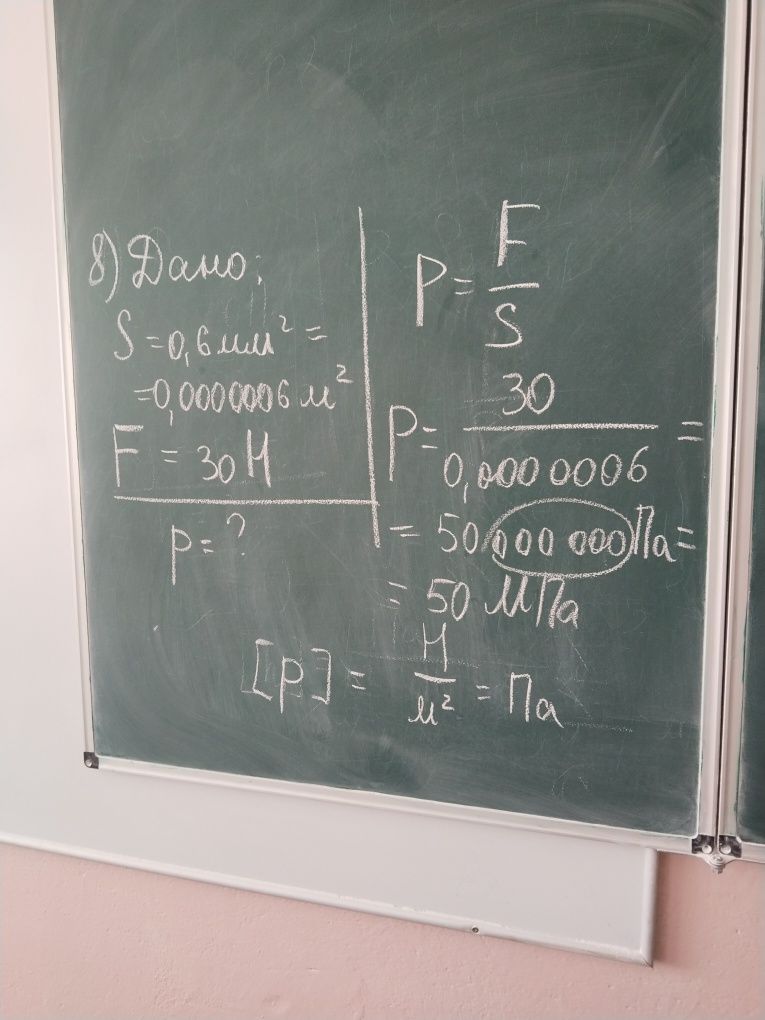 8) Дано:
S = 0,6 мм² =
= 0,0000006 м²
F = 30 Н
p = ?
P = F/S
P = 30/0,0000006 =
= 50 000 000 Па =
= 50 МПа
[p] = Н/м² = Па